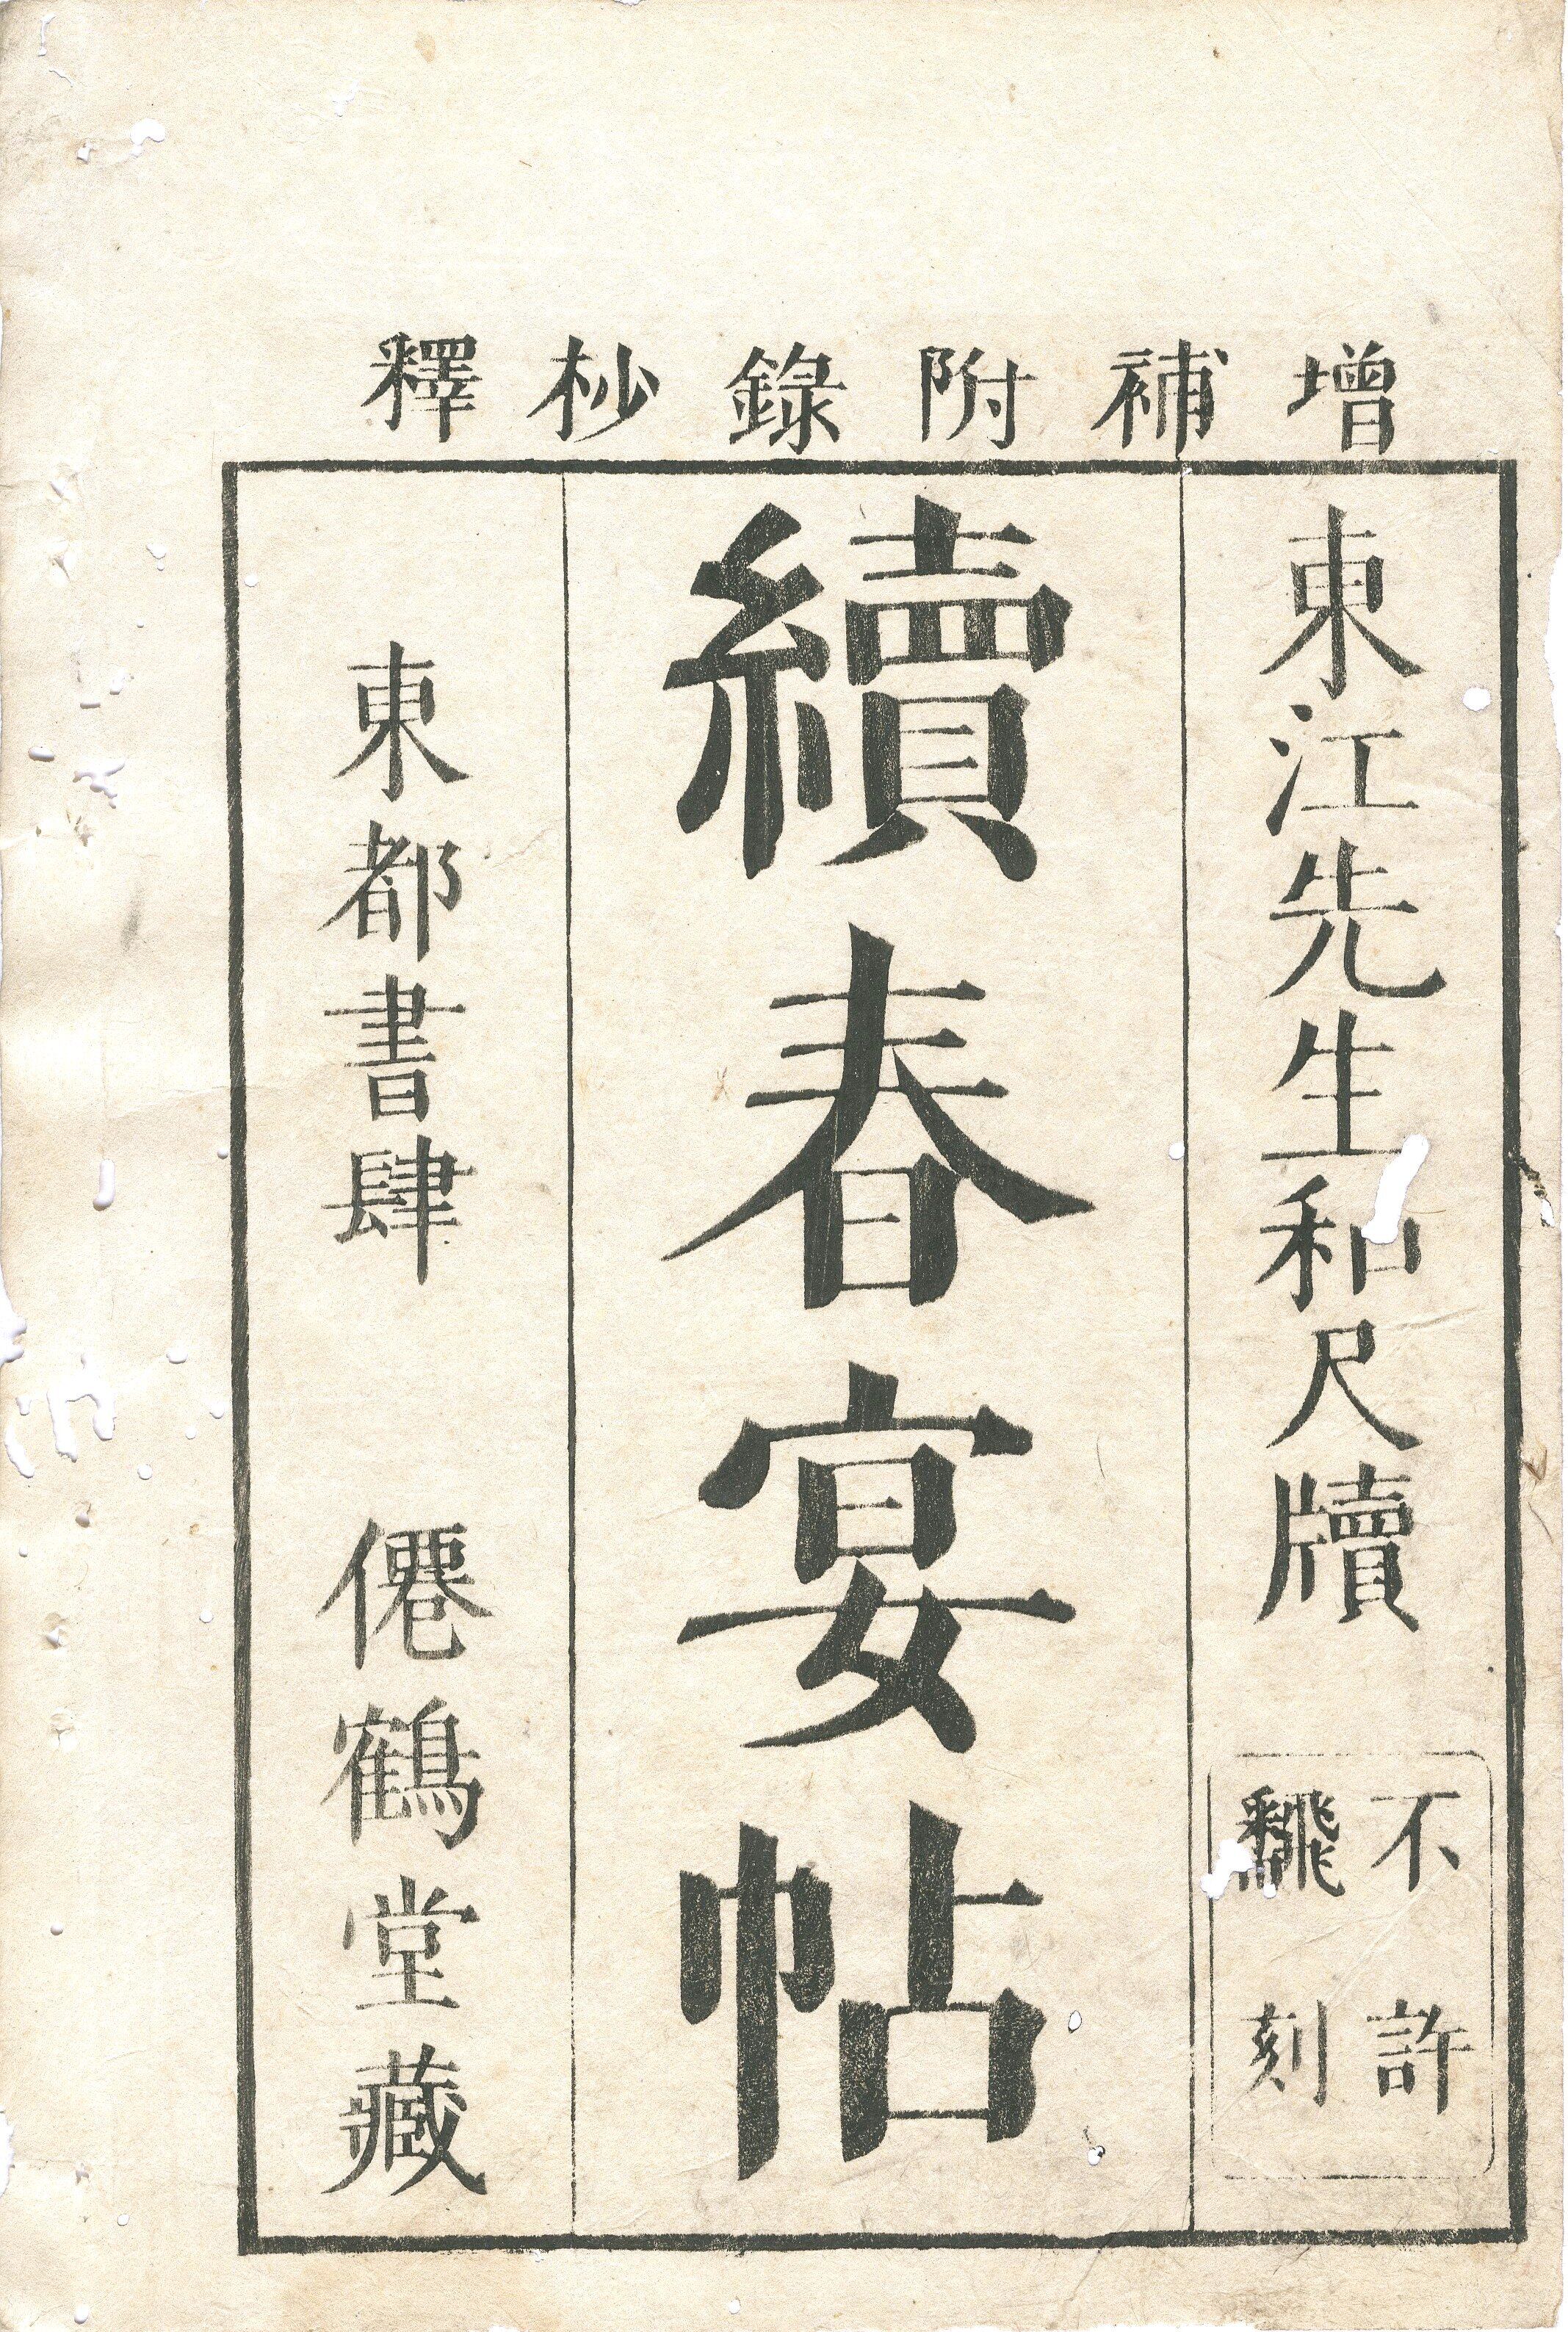 增補附錄杪釋
東江先生和尺牘
不許
飜刻
續春宴帖
東都書肆 僊鶴堂藏